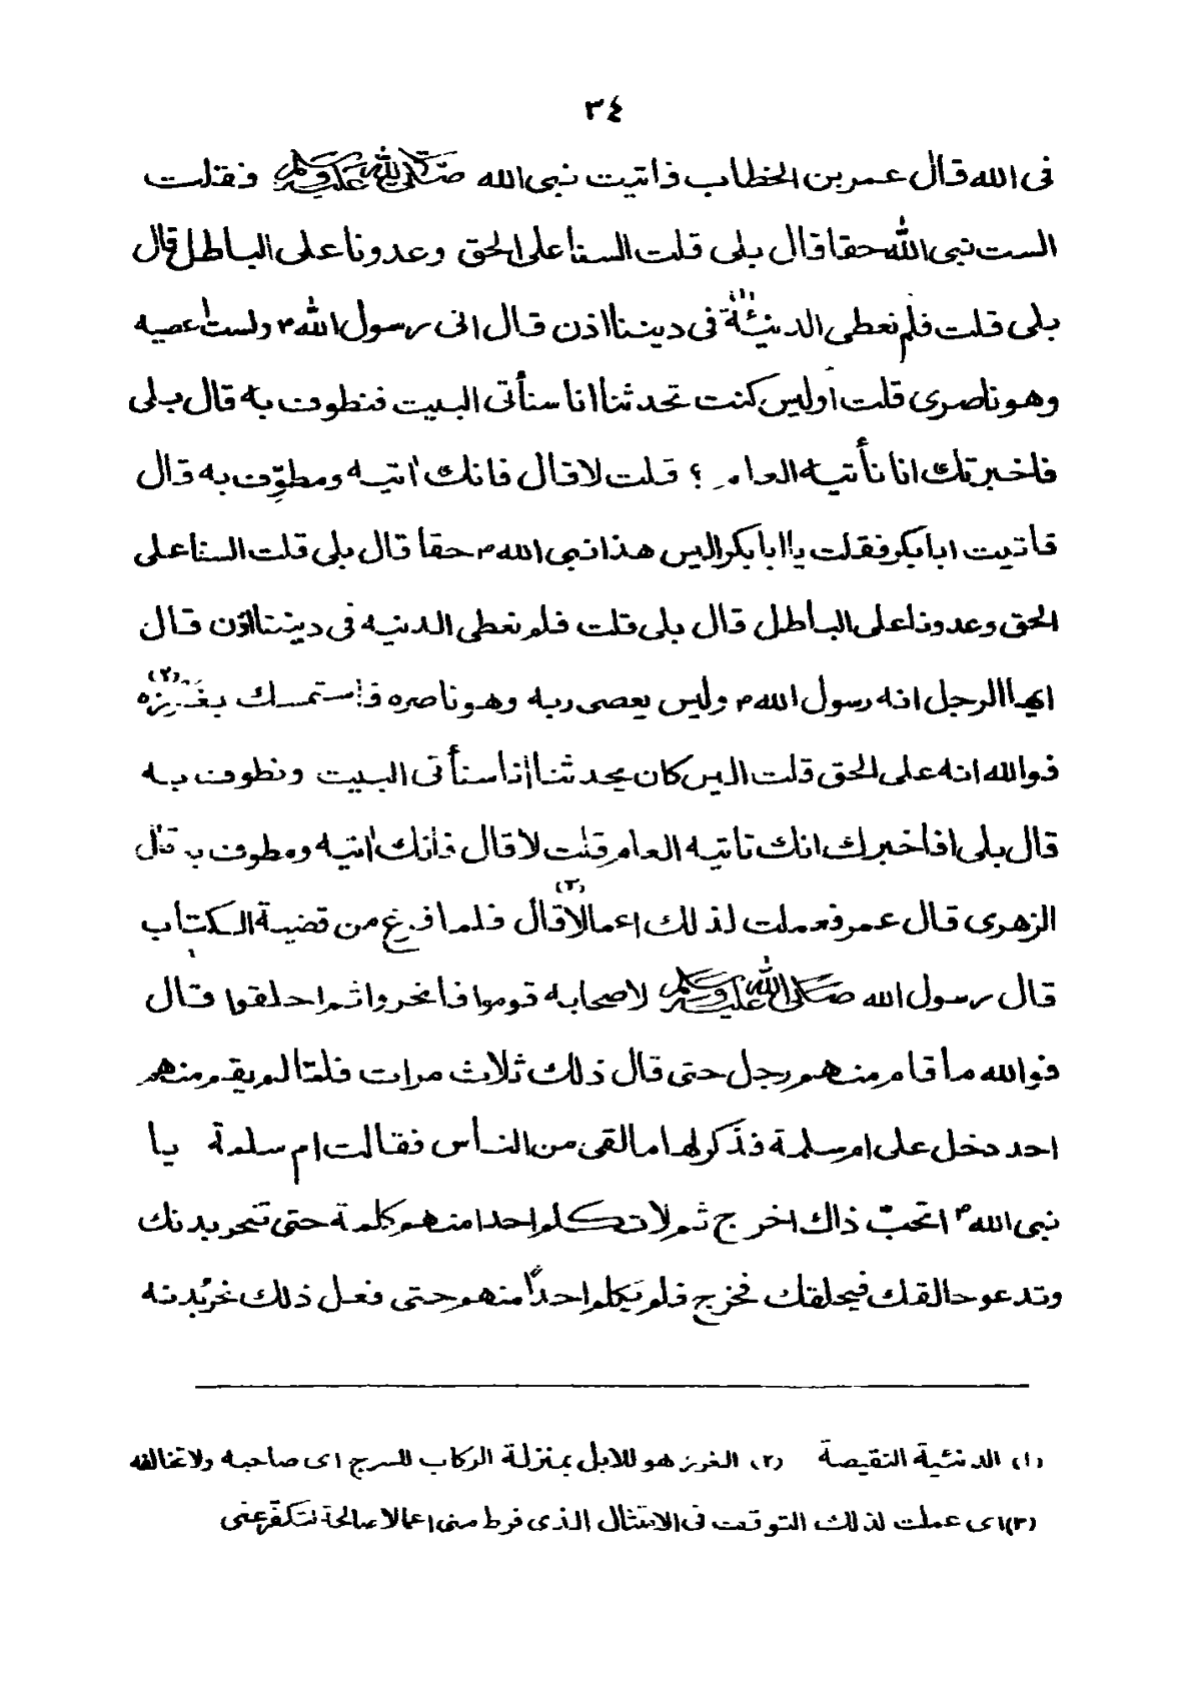 ٣٤
فى الله قال عمر بن الخطاب فاتيت نبى الله صلى الله عليه وسلم فقلت
الست نبى الله حقا قال بلى قلت السنا على الحق وعدونا على الباطل قال
بلى قلت فلم نعطى الدنيئة (١) فى ديننا اذن قال انى رسول الله ؐ ولست اعصيه
وهو ناصرى قلت أوليس كنت تحدثنا انا سنأتى البيت فنطوف به قال بلى
فاخبرتك انا نأتيه العام ؟ قلت لا قال فانك اٰتيه ومطوِّف به قال
فاتيت ابا بكر فقلت يا ابا بكر اليس هذا نبى الله ؐ حقا قال بلى قلت السنا على
الحق وعدونا على الباطل قال بلى قلت فلم نعطى الدنيه فى ديننا اذن قال
ايها الرجل انه رسول الله ؐ وليس يعصى ربه وهو ناصره فاستمسك بغَرزه (٢)
فوالله انه على الحق قلت اليس كان يحدثنا انا سنأتى البيت ونطوف به
قال بلى افاخبرك انك تاتيه العام قلت لا قال فانك اٰتيه ومطوف به قال
الزهرى قال عمر فعملت لذلك اعمالا (٣) قال فلما فرغ من قضية الكتاب
قال رسول الله صلى الله عليه وسلم لاصحابه قوموا فانحروا ثم احلقوا قال
فوالله ما قام منهم رجل حتى قال ذلك ثلاث مرات فلمّا لم يقم منهم
احد دخل على ام سلمة فذكر لها ما لقى من الناس فقالت ام سلمة يا
نبى الله ؐ اتحبّ ذاك اخرج ثم لا تكلم احدا منهم كلمة حتى تنحر بدنك
وتدعو حالقك فيحلقك فخرج فلم يكلم احداً منهم حتى فعل ذلك نحر بُدنه
(١) الدنئية النقيصة (٢) الغرز هو للابل بمنزلة الركاب للسرج اى صاحبه ولا تخالفه
(٣) اى عملت لذلك التوقف فى الامتثال الذى فرط منى اعمالا صالحة لتكفّر عنى